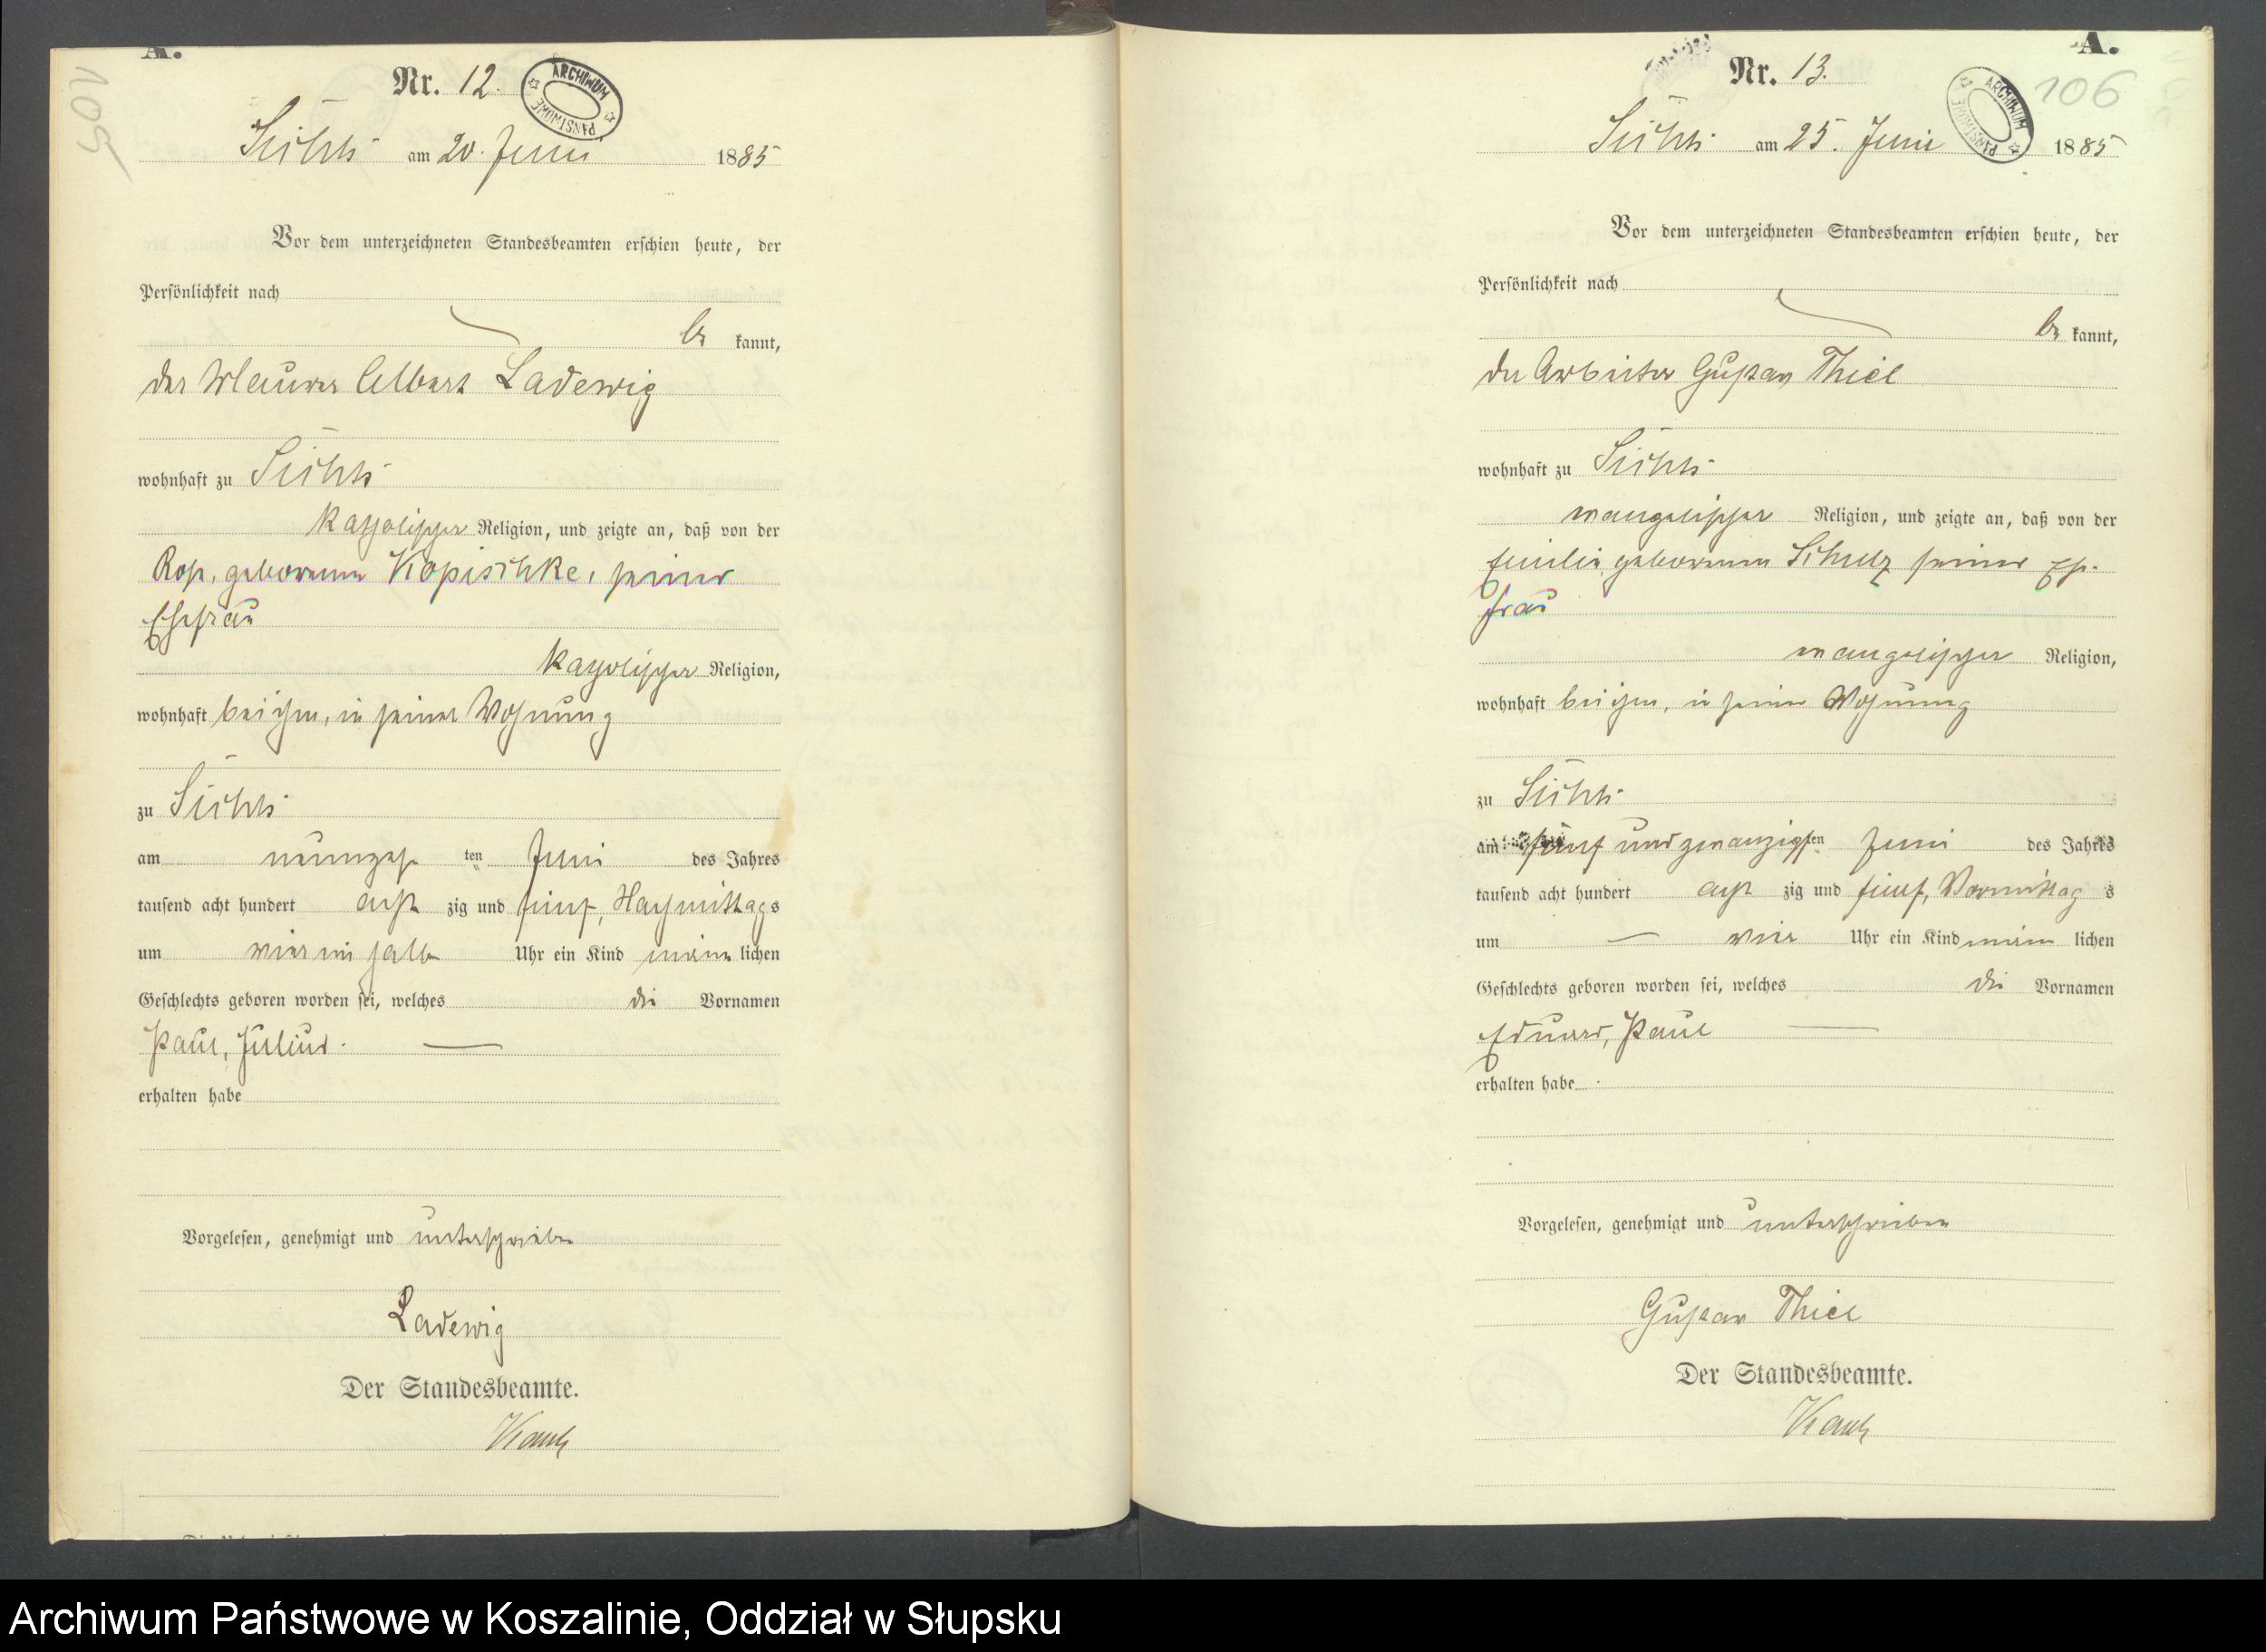 A.
105
Nr. 12.
ARCHIWUM PAŃSTWOWE
am 20. Juni 1885
Vor dem unterzeichneten Standesbeamten erschien heute, der
Persönlichkeit nach
be kannt,
der Maurer Albert Ladewig
wohnhaft zu
katholischer Religion, und zeigte an, daß von der
Rosa, geborenen Kopischke, seiner
Ehefrau
katholischer Religion,
wohnhaft bei ihm, in seiner Wohnung
zu
am neunzehn ten Juni des Jahres
tausend acht hundert acht zig und fünf, Nachmittags
um vier ein halb Uhr ein Kind männ lichen
Geschlechts geboren worden sei, welches die Vornamen
Paul, Julius.
erhalten habe
Vorgelesen, genehmigt und unterschrieben
Ladewig
Der Standesbeamte.
A.
106
Nr. 13.
ARCHIWUM PAŃSTWOWE
am 25. Juni 1885
Vor dem unterzeichneten Standesbeamten erschien heute, der
Persönlichkeit nach
be kannt,
der Arbeiter Gustav Thiel
wohnhaft zu
evangelischer Religion, und zeigte an, daß von der
Emilie geborenen Schulz seiner Ehe-
frau
evangelischer Religion,
wohnhaft bei ihm, in seiner Wohnung
zu
am fünf und zwanzigsten Juni des Jahres
tausend acht hundert acht zig und fünf, Vormittag s
um vier Uhr ein Kind männ lichen
Geschlechts geboren worden sei, welches die Vornamen
Eduard, Paul
erhalten habe
Vorgelesen, genehmigt und unterschrieben
Gustav Thiel
Der Standesbeamte.
Archiwum Państwowe w Koszalinie, Oddział w Słupsku